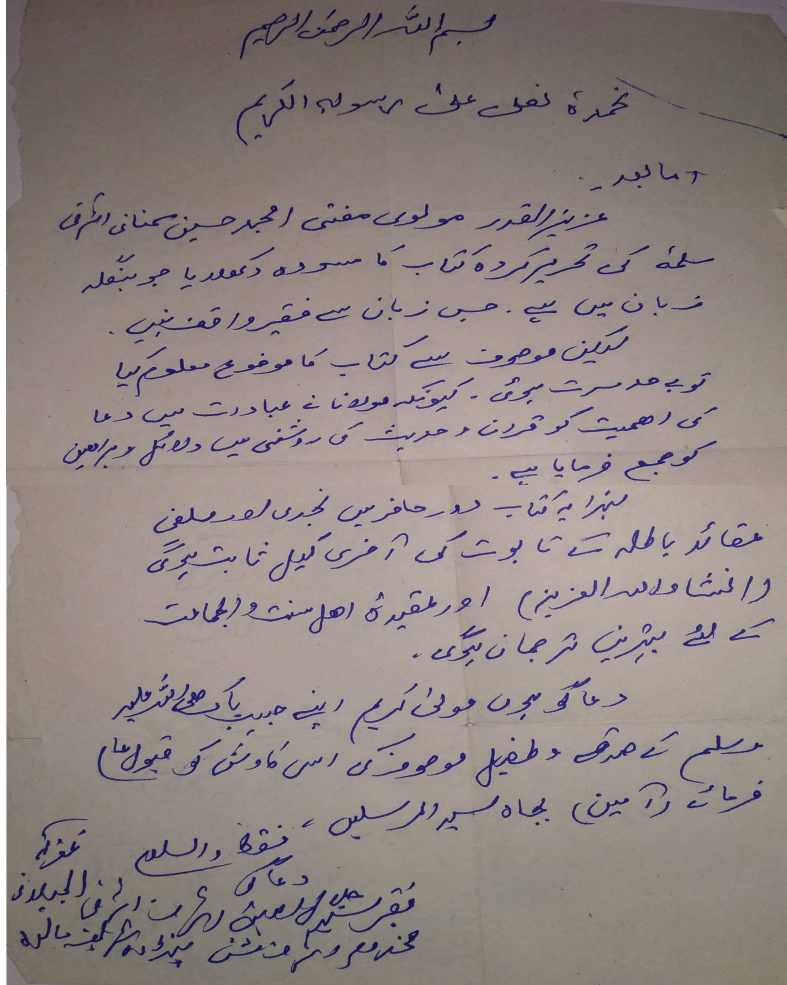 بسم اللہ الرحمٰن الرحیم
نحمدہ نصلی علیٰ رسولہ الکریم
اما بعد۔
عزیز القدر مولوی مفتی امجد حسین سمنانی اشرفی
سلمہٗ کی تحریر کردہ کتاب کا مسودہ دکھلایا جو بنگلہ
زبان میں ہے۔ جس زبان سے فقیر واقف نہیں۔
لیکن موصوف سے کتاب کا موضوع معلوم کیا
تو بے حد مسرت ہوئی۔ کیونکہ مولانا نے عبادت میں دعا
کی اھمیت کو قرآن و حدیث کی روشنی میں دلائل و براھین
کو جمع فرمایا ہے۔
لہٰذا یہ کتاب دور حاضر میں نجدی اور سلفی
عقائد باطلہ کے تابوت کی آخری کیل ثابت ہوگی
(انشاء اللہ العزیز) اور عقیدۂ اھل سنت والجماعت
کے لئے بہترین ترجمان ہوگی۔
دعا گو ہوں مولیٰ کریم اپنے حبیب پاک صلی اللہ علیہ
وسلم کے صدقے و طفیل موصوف کی اس کاوش کو قبول عام
فرمائے (آمین) بجاہ سید المرسلین، فقط والسلام
دعا گو
فقیر سید جلال الدین اشرف اشرفی الجیلانی غفرلہ
مخدوم اشرف مشن پنڈوہ شریف مالدہ